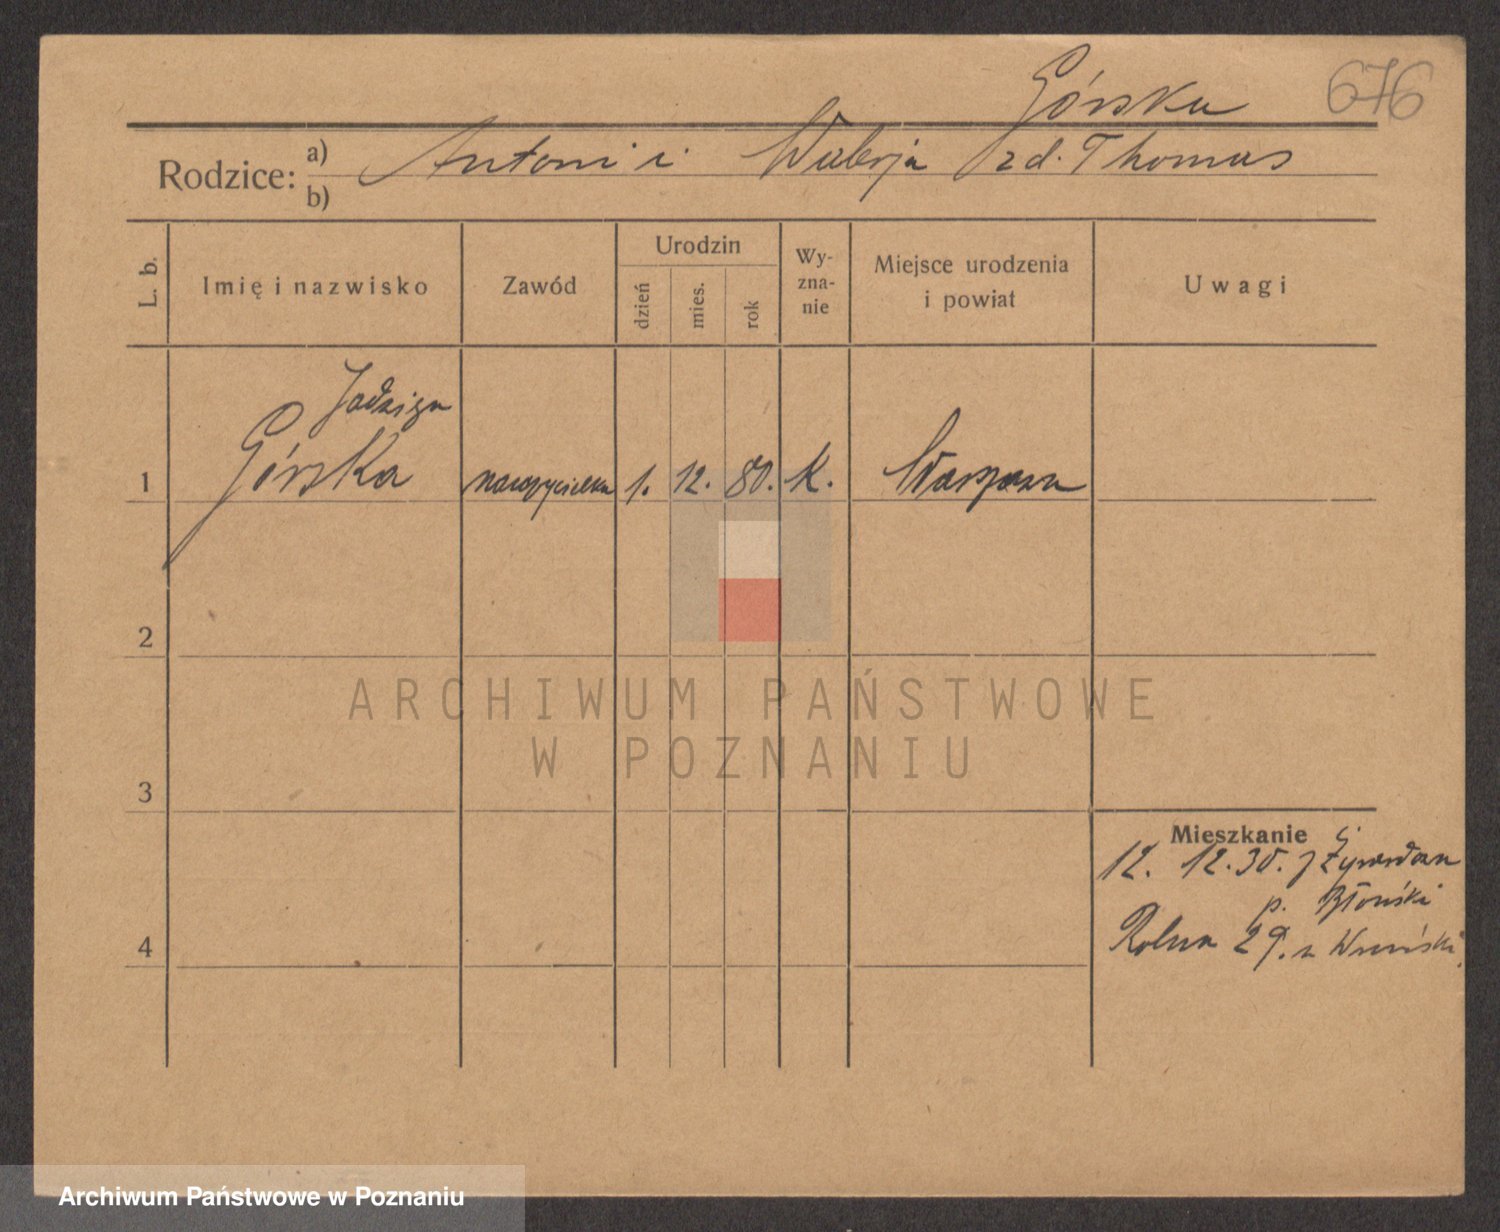 Górska 676
Rodzice: a) Antoni i Waleryja zd. Thomas
b)
L. b. Imię i nazwisko Zawód Urodzin dzień mies. rok Wyznanie Miejsce urodzenia i powiat Uwagi
Jadwiga
1 Górska nauczycielka 1. 12. 80. K. Warszawa
2
ARCHIWUM PAŃSTWOWE
W POZNANIU
3
Mieszkanie
12. 12.30. z Żyrardowa
p. Błoński
4 Rolna 29. u
Archiwum Państwowe w Poznaniu